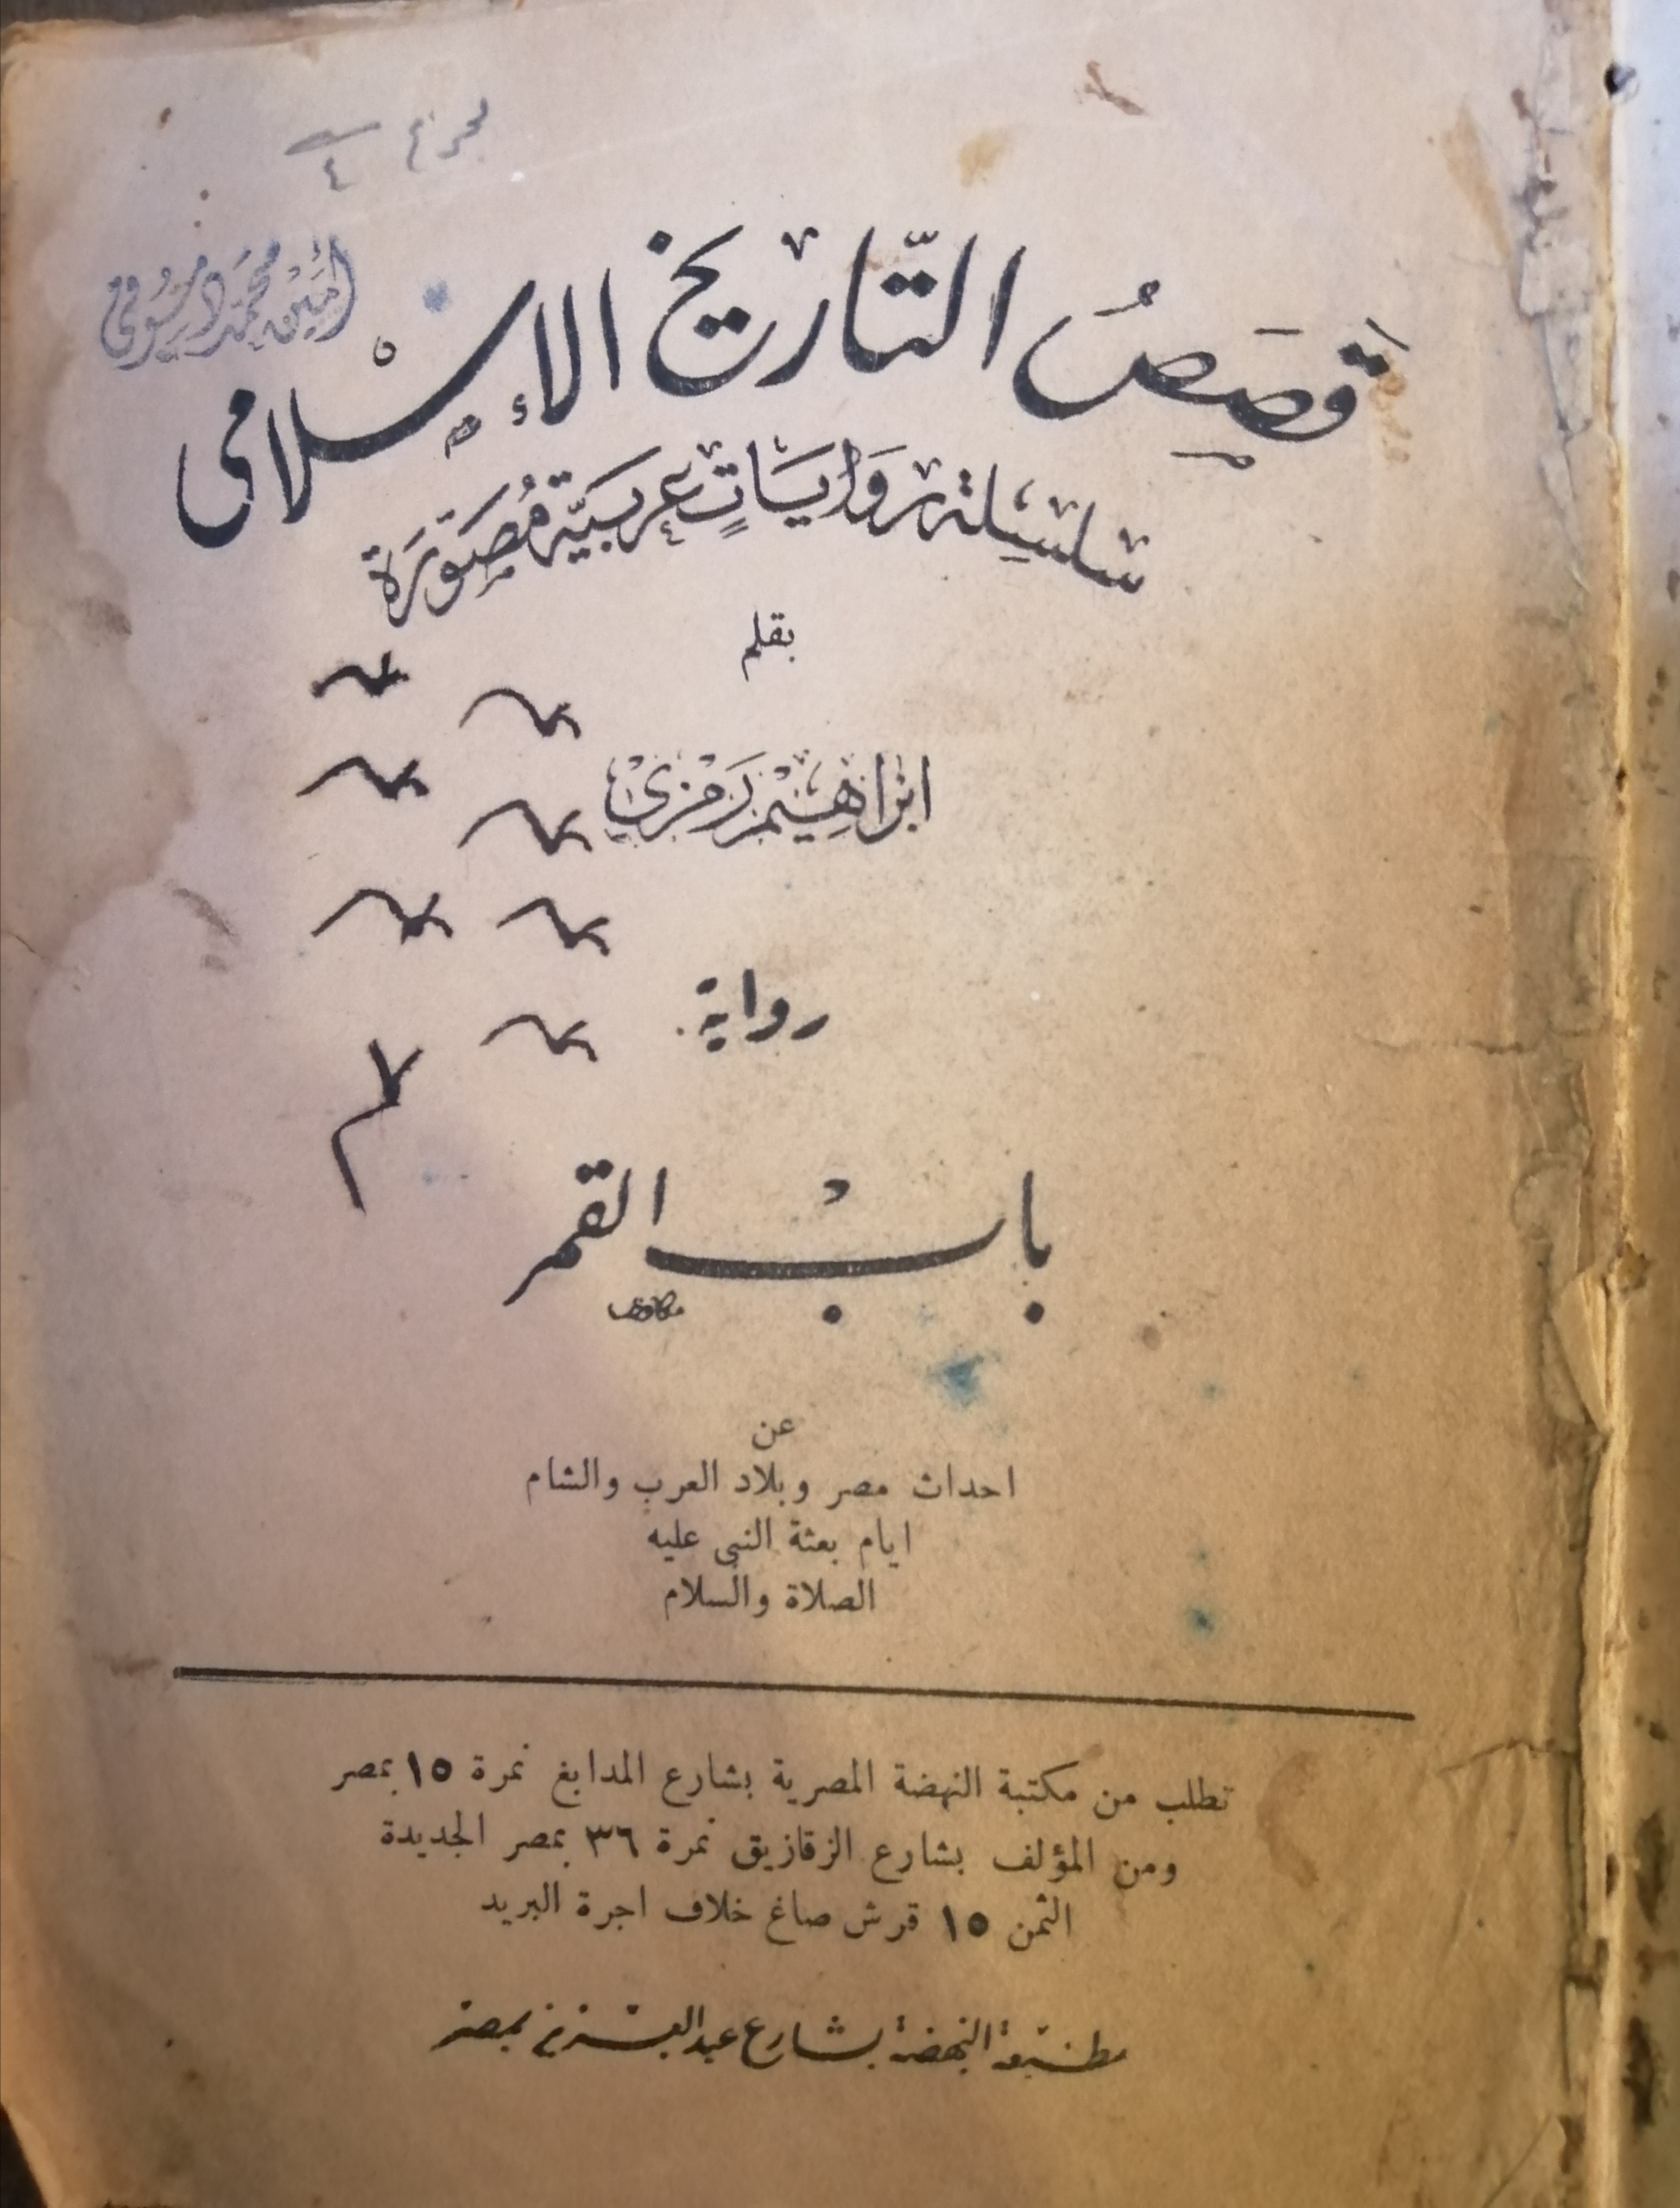 أمين محمد دسوقي
قصص التاريخ الإسلامى
سلسلة روايات عربية مصورة
بقلم
ابراهيم رمزى
رواية
باب القمر
عن
احداث مصر وبلاد العرب والشام
ايام بعثة النبى عليه
الصلاة والسلام
تطلب من مكتبة النهضة المصرية بشارع المدابغ نمرة ١٥ بمصر
ومن المؤلف بشارع الزقازيق نمرة ٣٦ بمصر الجديدة
الثمن ١٥ قرش صاغ خلاف اجرة البريد
مطبعة النهضة بشارع عبد العزيز بمصر